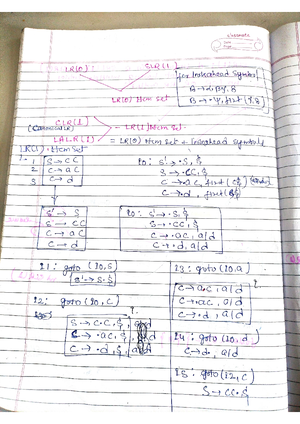 LR(0) SLR(1)
LR(0) Item set
for Lookahead Symbol
CLR(1)
LALR(1)
LR(1) Item Set
= LR(0) Item Set + Lookahead Symbol
LR(1) Item Set
1 S → CC
2 C → aC
3 C → d
I0: S' → .S, $
S → .CC, $
S' → S
S' → CC
C → aC
C → d
I0: S' → .S, $
S → .CC, $
C → .aC, a/d
C → .d, a/d
I1: goto (I0, S)
S' → S., $
I2: goto (I0, C)
S → C.C, $
C → .aC, $
C → .d, $
I3: goto (I0, a)
C → a.C, a/d
C → .aC, a/d
C → .d, a/d
I4: goto (I0, d)
C → d., a/d
I5: goto (I2, C)
S → CC., $